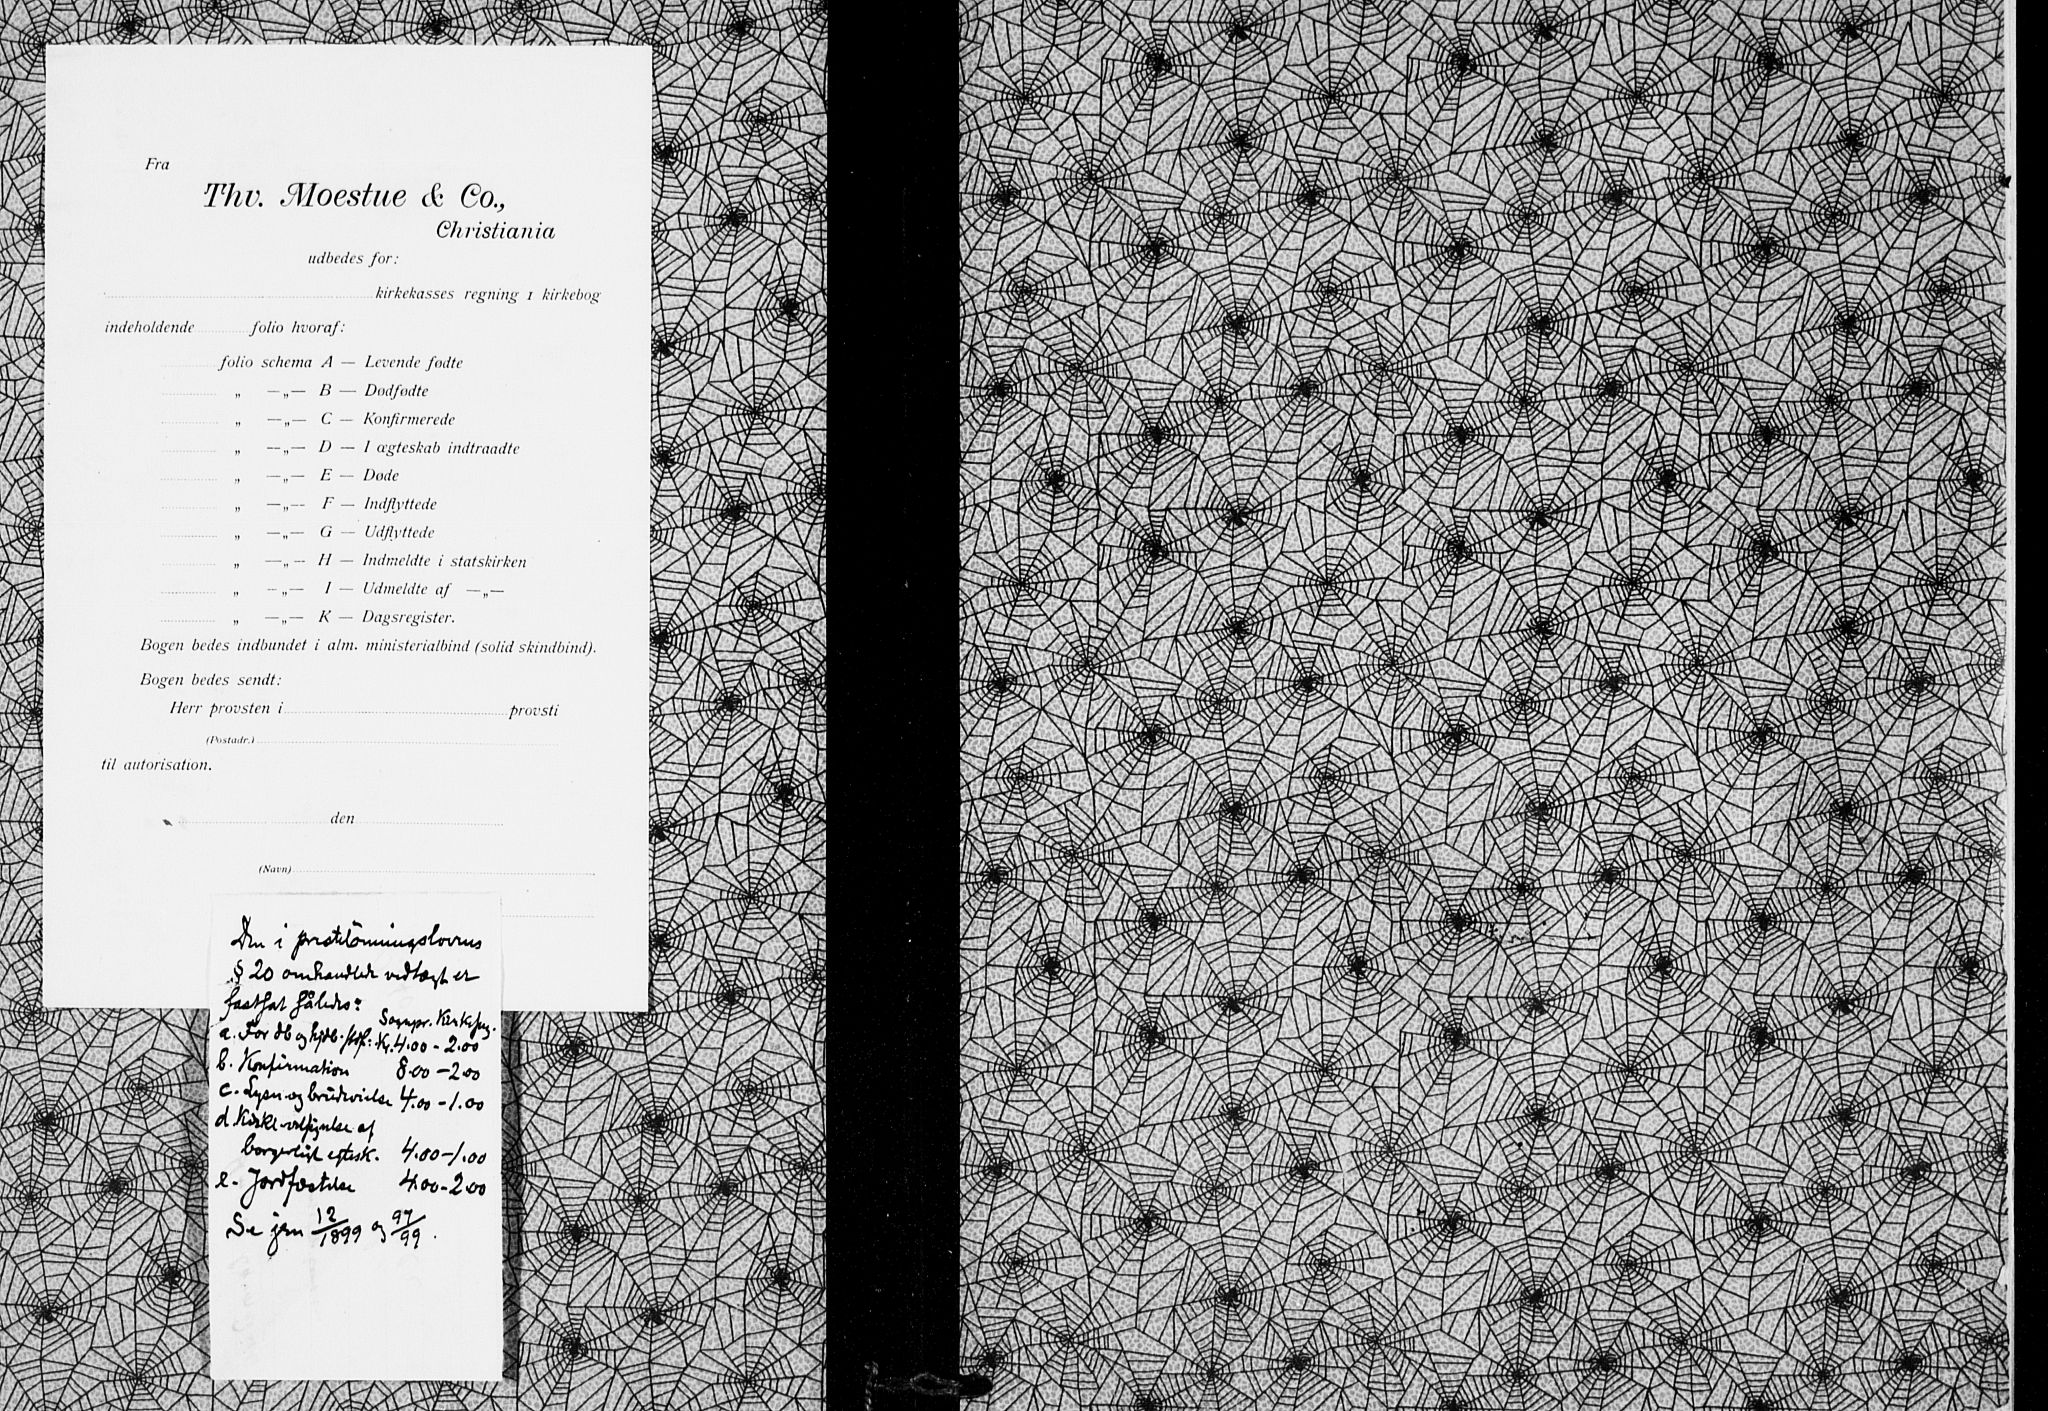 Fra
Thv. Moestue & Co.,
Christiania
udbedes for:
kirkekasses regning 1 kirkebog
indeholdende folio hvoraf:
folio schema A — Levende fødte
„ —„— B — Dødfødte
„ —„— C — Konfirmerede
„ —„— D — I ægteskab indtraadte
„ —„— E — Døde
„ —„— F — Indflyttede
„ —„— G — Udflyttede
„ —„— H — Indmeldte i statskirken
„ —„— I — Udmeldte af —„—
„ —„— K — Dagsregister.
Bogen bedes indbundet i alm. ministerialbind (solid skindbind).
Bogen bedes sendt:
Herr provsten i provsti
(Postadr.)
til autorisation.
den
(Navn)
Den i prestelönningslovens
§ 20 omhandlede vedtægt er
fastsat således:
Sognepr. Kirkesg.
a. For db og hjdb. Kr. 4.00 - 2.00
b. Konfirmation 8.00 - 2.00
c. Lysn. og brudevielse 4.00 - 1.00
d. Kirkl. velsignelse af
borgerligt egtesk. 4.00 - 1.00
e. Jordfæstelse 4.00 - 2.00
Se jrn 12/1899 og 97/99.